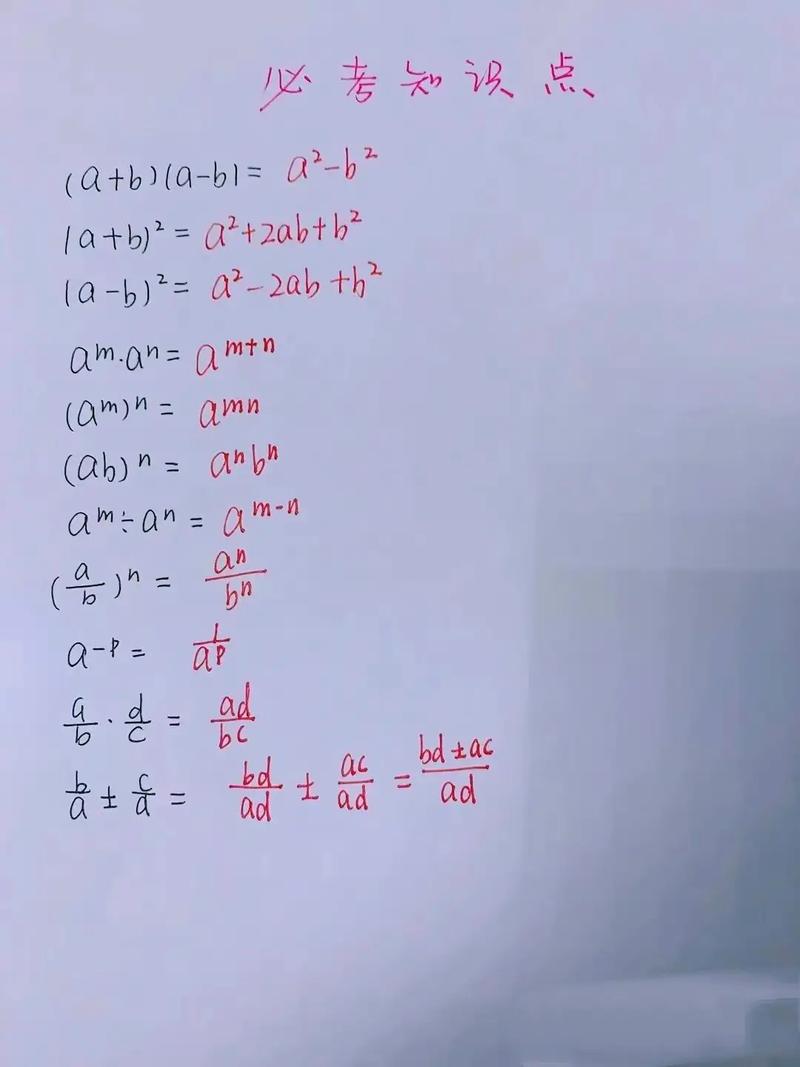 必考知识点
(a+b)(a-b)= a²-b²
(a+b)²= a²+2ab+b²
(a-b)²= a²-2ab+b²
aᵐ·aⁿ= aᵐ⁺ⁿ
(aᵐ)ⁿ= aᵐⁿ
(ab)ⁿ= aⁿbⁿ
aᵐ÷aⁿ= aᵐ⁻ⁿ
(a/b)ⁿ= aⁿ/bⁿ
a⁻ᵖ= 1/aᵖ
a/b · d/c = ad/bc
b/a ± c/a = bd/ad ± ac/ad = (bd±ac)/ad